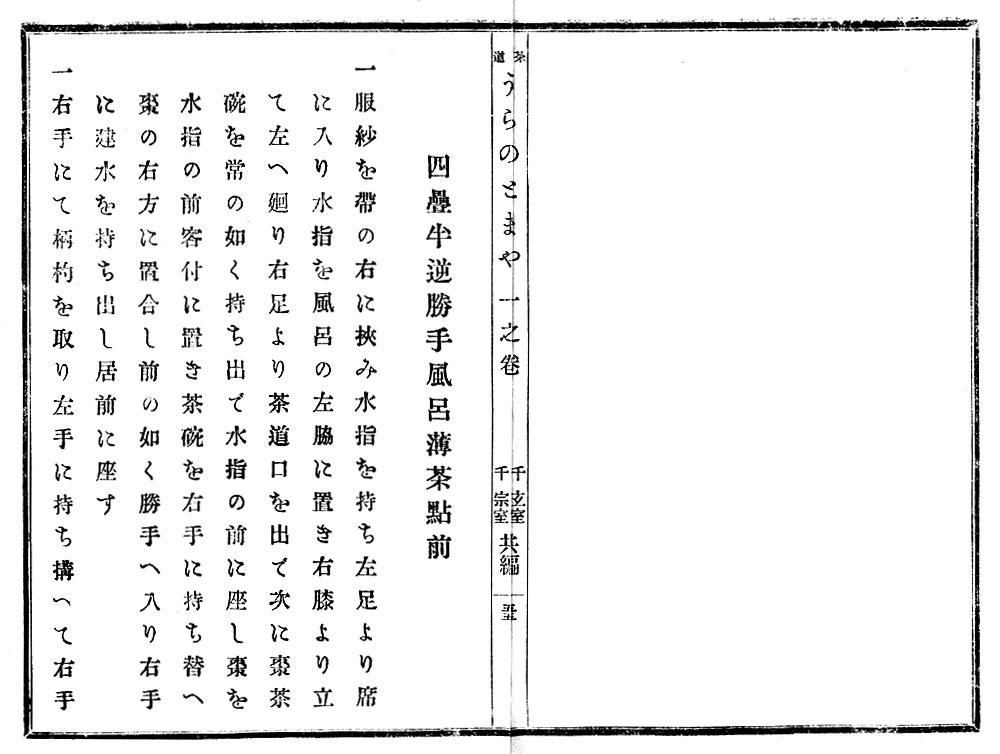 茶道
うらのとまや 一之卷
千玄室
千宗室
共編
四疊半逆勝手風呂薄茶點前
一服紗を帶の右に挾み水指を持ち左足より席
に入り水指を風呂の左脇に置き右膝より立
て左へ廻り右足より茶道口を出で次に棗茶
碗を常の如く持ち出で水指の前に座し棗を
水指の前客付に置き茶碗を右手に持ち替へ
棗の右方に置合し前の如く勝手へ入り右手
に建水を持ち出し居前に座す
一右手にて柄杓を取り左手に持ち搆へて右手